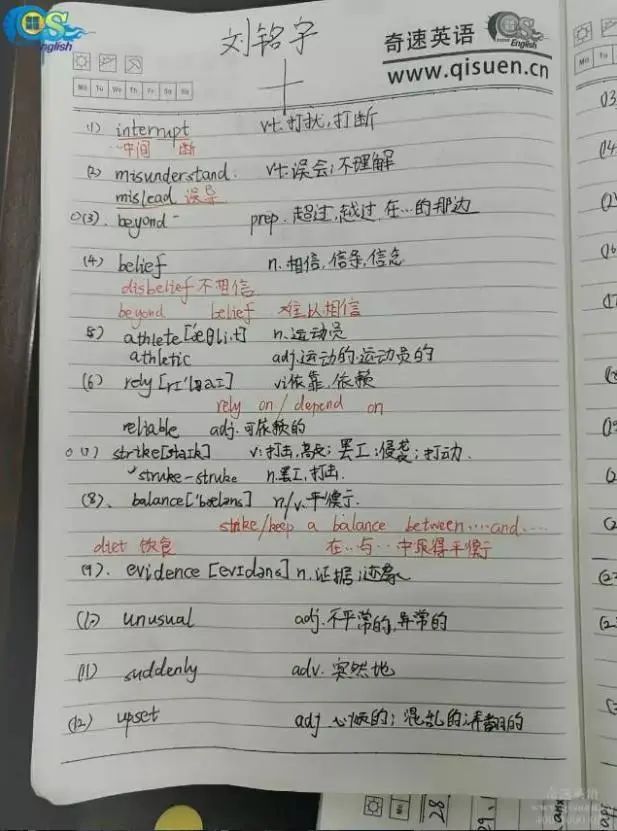 QS English
刘铭宇
奇速英语 QS English
www.qisuen.cn
Mo Tu We Th Fr Sa Su
(1) interrupt vt.打扰,打断
中间 断
(2) misunderstand. vt.误会;不理解
mislead 误导
(3). beyond prep.超过,越过,在...的那边
(4) belief n.相信,信条,信念
disbelief 不相信
beyond belief 难以相信
(5) athlete['æθli:t] n.运动员
athletic adj.运动的.运动员的
(6) rely [rɪ'laɪ] vi依靠,依赖
rely on / depend on
reliable adj.可依赖的
(7) strike[staɪk] v.打击, 罢工;侵袭;打动.
struke-struke n.罢工,打击.
(8). balance['bæləns] n/v.平衡.
strike/keep a balance between....and....
diet 饮食 在...与...中取得平衡
(9). evidence [evɪdəns] n.证据;迹象
(10) unusual adj.不平常的,异常的
(11) suddenly adv. 突然地
(12) upset adj 心烦的;混乱的;弄翻的
28
29